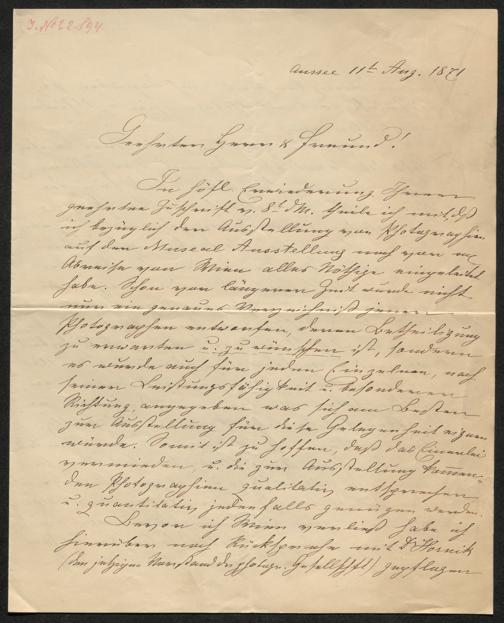 J. No 22.894
Aussee 11t Aug. 1871
Geehrter Herr & Freund!
In höfl. Erwiederung Ihrer
geehrten Zuschrift v. 8t d M. theile ich mit, daß
ich bezüglich der Ausstellung von Photographien
auf der Museal Ausstellung noch vor m
Abreise von Wien alles Nöthige eingeleitet
habe. Schon vor längerer Zeit wurde nicht
nur ein genaues Verzeichniß jener
Photographen entworfen, deren Betheiligung
zu erwarten u. zu wünschen ist, sondern
es wurde auch für jeden Einzelnen, nach
seiner Leistungsfähigkeit u. besonderen
Richtung, angegeben was sich am Besten
zur Ausstellung für diese Gelegenheit eignen
würde. Somit ist zu hoffen, daß das Einerlei
vermieden, u. die zur Ausstellung kommen-
den Photographien qualitativ entsprechen
u. quantitativ jedenfalls genügen werden.
Bevor ich Wien verließ habe ich
hierüber noch Rücksprache mit Dr Hornik
(dem jetzigen Vorstand der photogr. Gesellschft) gepflogen